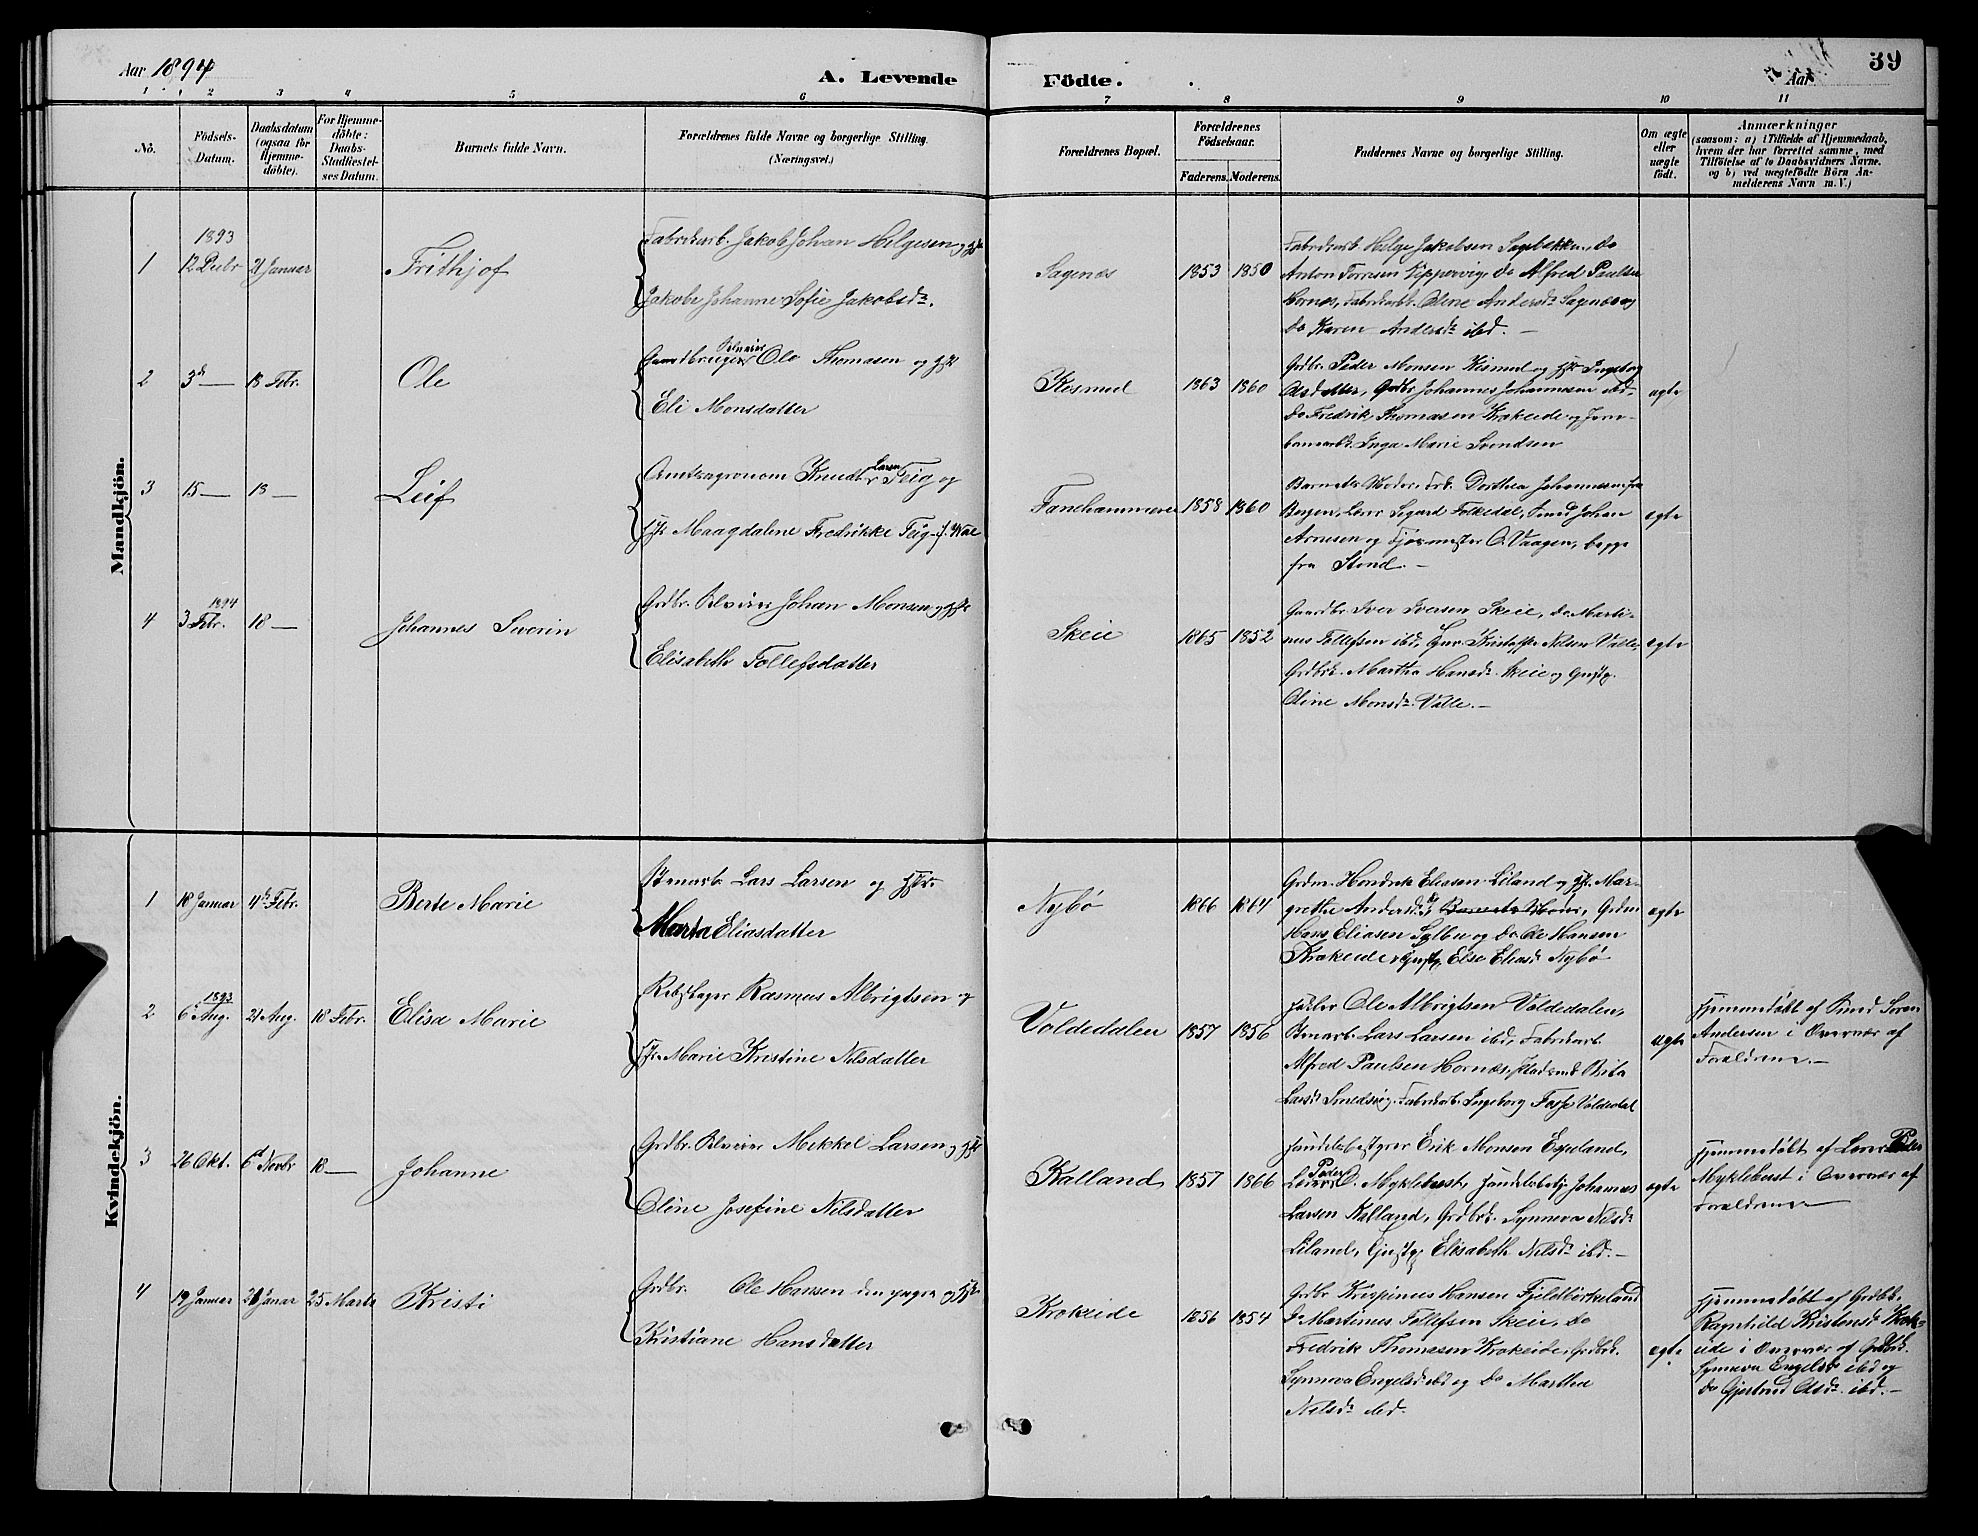 Aar 1894
A. Levende
Födte.
Aar
39
1 2 3 4 5 6 7 8 9 10 11
No.
Födsels-
Datum.
Daabsdatum
(ogsaa for
Hjemme-
döbte).
For Hjemme-
döbte:
Daabs-
Stadfæstel-
ses Datum.
Barnets fulde Navn.
Forældrenes fulde Navne og borgerlige Stilling.
(Næringsvei.)
Forældrenes Bopæl.
Forældrenes
Födselsaar.
Faderens. Moderens.
Faddernes Navne og borgerlige Stilling.
Om ægte
eller
uægte
födt.
Anmærkninger
(saasom: a) i Tilfælde af Hjemmedaab,
hvem der har forrettet samme, med
Tilföielse af to Daabsvidners Navne.
og b) ved uægtefödte Börn An-
melderens Navn m. V.)
Mandkjön.
1
1893
12 Decbr
21 Januar
Frithjof
Fabrikarb. Jakob Johan Helgesen og Hst
Jakobe Johanne Sofie Jakobsdr.
Sagenæs
1853
1850
Fabrikarb. Helge Jakobsen Sagbakken, do
Anton Torrisen Kippervig, do Alfred Paulsen
Hornæs, Fabrikarb. Oline Andersdr Sagenæs og
do Karen Andersdr ibd. —
2
3d —
18 Febr.
Ole
Gaardbruger Selveier Ole Thomasen og Hst
Eli Monsdatter
Kismul
1863
1860
Grdbr. Peder Monsen Kismul og Hst Ingeborg
Olsdatter, Grdbr. Johannes Johannesen ibd.,
do Fredrik Thomasen Krokeide og Jern-
banearb. Inga Marie Svendsen
ægte
3
15 —
18 —
Leif
Amtsagronom Knudt Larsen Teig og
Hst Maagdalene Fredrikke Teig f. Wae
Fanehammeren
1858
1860
Barnets Moder, Frk. Dorthea Johannesen fra
Bergen, Lærer Sigurd Folkedal, Smed Johan
Arnesen og O. Vaagen, begge
fra Stend. —
ægte
4
1894
3 Febr.
18 —
Johannes Severin
Grdbr. Selveier Johan Monsen og Hst
Elisabeth Tollefsdatter
Skeie
1865
1852
Gaardbr. Iver Iversen Skeie, do Marti-
nus Tollefsen ibd., Gmr. Kristoffer Nilsen Valle,
Grdbrk. Martha Hansdr. Skeie og Gustp.
Oline Monsdr. Valle. —
ægte
Kvindekjön.
1
18 Januar
4de Febr.
Berte Marie
Stenarb. Lars Larsen og Hstr.
Marta Eliasdatter
Nybö
1866
1864
Grdm. Hendrik Eliasen Liland og Hst. Mar-
grethe Andersdr, Barnets Moder, Grdm
Hans Eliasen Sylbu og do Ole Hansen
Krokeide, Gustp Else Eliasdr Nybö
ægte
2
1893
6 Aug.
21 Aug.
18 Febr.
Elisa Marie
Rebslager Rasmus Albrigtsen og
Hst. Marie Kristine Nilsdatter
Voldedalen
1857
1856
Ole Albrigtsen Voldedalen,
Stenarb. Lars Larsen ibd., Fabrikarb.
Alfred Paulsen Hornæs, Brita
Larsdr Smedsvig, Fabrikarb. Ingeborg Fosse Voldedal
ægte
Hjemmedöbt af Smed Sören
Andersen i Overvær af
Forældrene. —
3
26 Okt.
6te Novbr
18 —
Johanne
Grdbr. Selveier Mikkel Larsen og Hst
Oline Josefine Nilsdatter
Kalland
1857
1866
Handelsbestyrer Erik Monsen Espeland,
Lærer Peder O. Myklebust, Handelsbetj. Johannes
Larsen Kalland, Grdbrk. Synneva Nilsdr
Liland, Gustp Elisabeth Nilsdr ibd. —
ægte
Hjemmedöbt af Lærer Peder
Myklebust i Overvær af
Forældrene —
4
19 Januar
21 Januar
25 Marts
Kristi
Grdbr. Ole Hansen den yngre og Hst
Kristiane Hansdatter
Krokeide
1856
1854
Grdbr Krispinus Hansen Fjeldbirkeland
do Martinus Tollefsen Skeie, do
Fredrik Thomasen Krokeide, Grdbrk.
Synneva Engelsdr ibd og do Martha
Nilsdr ibd.
ægte
Hjemmedöbt af Grdbk.
Ragnhild Kristensdr Krok-
eide i Overvær af Grdbk.
Synneva Engelsdr ibd og
do Gjertrud Olsdr. ibd. —